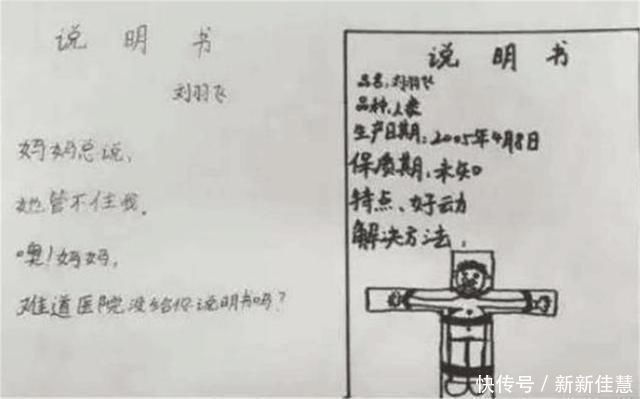 说 明 书
刘羽飞
妈妈总说，
她管不住我。
噢！妈妈，
难道医院没给你说明书吗？
说 明 书
品名：刘羽飞
品种：人类
生产日期：2005年4月8日
保质期：未知
特点：好动
解决方法：
快传号／新新佳慧